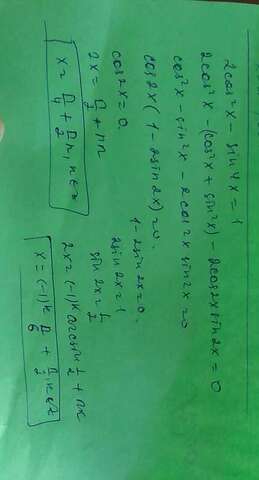 2cos²x - sin4x = 1
2cos²x - (cos²x + sin²x) - 2cos2x sin2x = 0
cos²x - sin²x - 2cos2x sin2x = 0
cos2x (1 - 2sin2x) = 0.
cos2x = 0.
2x = π/2 + πn
x = π/4 + π/2 n, n∈z
1 - 2sin2x = 0.
2sin2x = 1
sin2x = 1/2
2x = (-1)^k arcsin 1/2 + πk